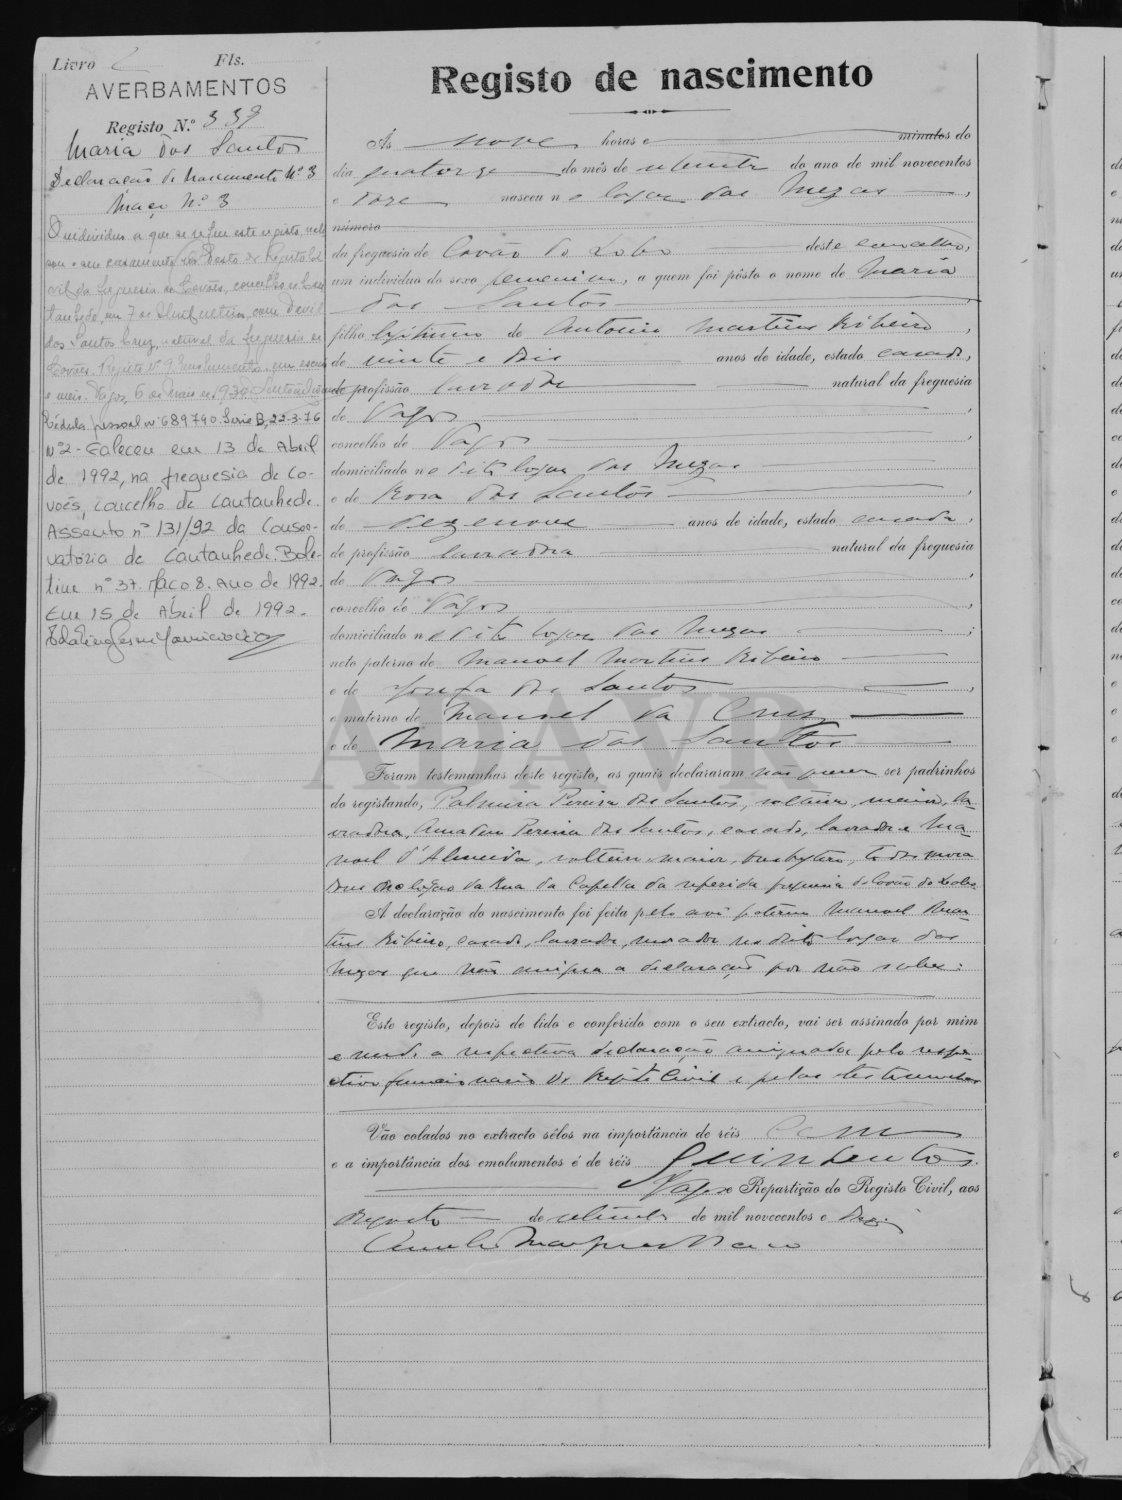 Livro 2 Fls.
AVERBAMENTOS
Registo N.º 339
Maria dos Santos
Declaração de Nascimento Nº 3
Maço Nº 3
O individuo a que se refere este registo, reali-
sou o seu casamento no Posto do Registo Ci-
vil da freguesia de Covões, concelho de Can-
tanhede, em 7 de, com David
dos Santos Cruz, natural da freguesia de
Covões. Registo Nº 9.
e meis. Vagos, 6 de Maio de 1930.
Cédula pessoal nº 689740 Serie B, 22-3-76
Nº2 - Faleceu em 13 de Abril
de 1992, na freguesia de Co-
vões, concelho de Cantanhede.
Assento nº 131/92 da Conser-
vatória de Cantanhede. Bole-
tim nº 37. Maço 8. Ano de 1992.
Em 15 de Abril de 1992.
Registo de nascimento
Ás nove horas e minutos do
dia quatorze do mês de setembro do ano de mil novecentos
e doze nasceu no logar das Mezas,
número
da freguesia de Covão do Lobo deste concelho,
um indivíduo do sexo femenino, a quem foi pôsto o nome de Maria
dos Santos
filho legitimo de Antonio Martins Ribeiro,
de vinte e dois anos de idade, estado casado,
de profissão lavrador natural da freguesia
de Vagos,
concelho de Vagos,
domiciliado no dito logar das Mezas
e de Rosa dos Santos,
de dezenove anos de idade, estado casada,
de profissão lavradora natural da freguesia
de Vagos,
concelho de Vagos,
domiciliado no dito logar das Mezas;
neto paterno de Manoel Martins Ribeiro
e de Josefa dos Santos,
e materno de Manoel da Cruz
e de Maria dos Santos
Foram testemunhas deste registo, as quais declararam não querer ser padrinhos
do registando, Palmira Pereira dos Santos, solteira, maior, la-
vradora, Amadeu Pereira dos Santos, casado, lavrador e Ma-
noel d'Almeida, solteiro, maior, presbytero, todos mora
dores no logar da Rua da Capella da referida freguesia de Covão do Lobo
A declaração do nascimento foi feita pelo avô paterno Manoel Mar-
tins Ribeiro, casado, lavrador, morador no dito logar das
Mezas que não assigna a declaração por não saber.
Este registo, depois de lido e conferido com o seu extracto, vai ser assinado por mim
e sendo a respectiva declaração assignada pelo respe-
ctivo funcionario do Registo Civil e pelas testemunhas
Vão colados no extracto sêlos na importância de réis Cem
e a importância dos emolumentos é de réis Quinhentos.
Vagos e Repartição do Registo Civil, aos
de setembro de mil novecentos e doze.
ADAVR